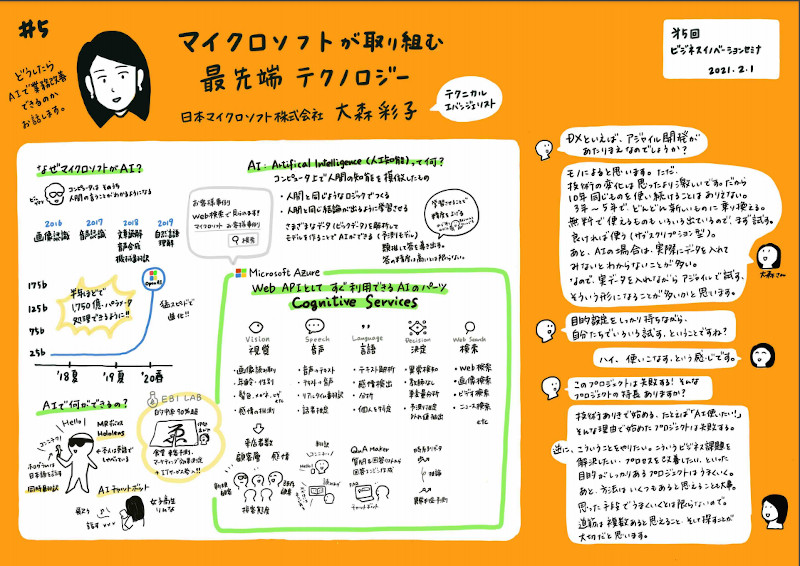 #5
どうしたら
AIで業務改善
できるのか
お話します。
マイクロソフトが取り組む
最先端 テクノロジー
日本マイクロソフト株式会社 大森 彩子
テクニカル
エバンジェリスト
第5回
ビジネスイノベーションセミナ
2021.2.1
なぜマイクロソフトがAI?
コンピュータは そのうち
人間の言うことがわかるようになる
2016
画像認識
2017
音声認識
2018
文章読解
音声合成
機械翻訳
2019
自然言語
理解
175b
125b
75b
25b
OpenAI
半年ほどで
1,750億パラメータ
処理できるように!!
猛スピードで
進化!!
'18夏
'19夏
'20春
AIで何ができるの?
Hello!
コンニチワ!
MRデバイス
Hololens
本人は英語で
しゃべっている
ホログラムは
日本語を話す
同時翻訳
AIチャットボット
女子高生
りんな
EBILAB
的中率90%超
AI:Artifical Intelligence(人工知能)って何?
コンピュータ上で人間の知能を模倣したもの
・人間と同じようなロジックでつくる
・人間と同じ結論が出るように学習させる
さまざまなデータ(ビッグデータ)を解析して
モデルを作ることでAIができる(予測モデル)
類推して答を書き出す。
学習させることで
精度を上げる
お客様事例
Web検索で見られます!
マイクロソフト お客様事例
検索
Microsoft Azure
Web APIとして すぐ利用できるAIのパーツ
Cognitive Services
Vision
視覚
・画像読み取り
・年齢・性別
・髪色、メガネ、ヒゲ etc
・感情の推測
Speech
音声
・音声のテキスト
・テキスト→音声
・リアルタイム翻訳
・話者推定
Language
言語
・テキスト翻訳
・感情検出
・分析
・個人を特定
Decision
決定
・異常検知
・教師なし
Web Search
検索
・Web検索
・画像検索
・ビデオ検索
・ニュース検索
etc
来店者数
顧客層
感情
接客態度
翻訳
こんにちは
Hello!
QnA Maker
質問と回答のペアから
FAQ
チャットボット
時系列データ
推論
DXといえば、アジャイル開発が
あたりまえなのでしょうか?
モノによると思います。ただ、
技術の変化は思ったより激しいです。だから
10年同じものを使い続けることはありえない。
3年〜5年で、どんどん新しいものに乗り換える。
無料で使えるものもいろいろ出ているので、まず試す。
良ければ使う(サブスクリプション型)。
あと、AIの場合は、実際にデータを入れて
みないとわからないことが多い。
なので、実データを入れながらアジャイルで試す、
そういう形になることが多いかと思います。
大森さん
目的設定をしっかり持ちながら、
自分たちでいろいろ試す、ということですね?
ハイ、使いこなす、という感じです。
このプロジェクトは失敗する! そんな
プロジェクトの特長 ありますか?
技術ありきで始める、たとえば「AI使いたい!」
そんな理由で始めたプロジェクトは失敗する。
逆に、こういうことをやりたい。こういうビジネス課題を
解決したい・プロセスを改善したい、といった
目的がしっかりあるプロジェクトはうまくいく。
あと、方法はいくつもあると思えることも大事。
思った手段でうまくいくとは限らないので、
道筋は複数あると思えること、そして探すことが
大切だと思います。